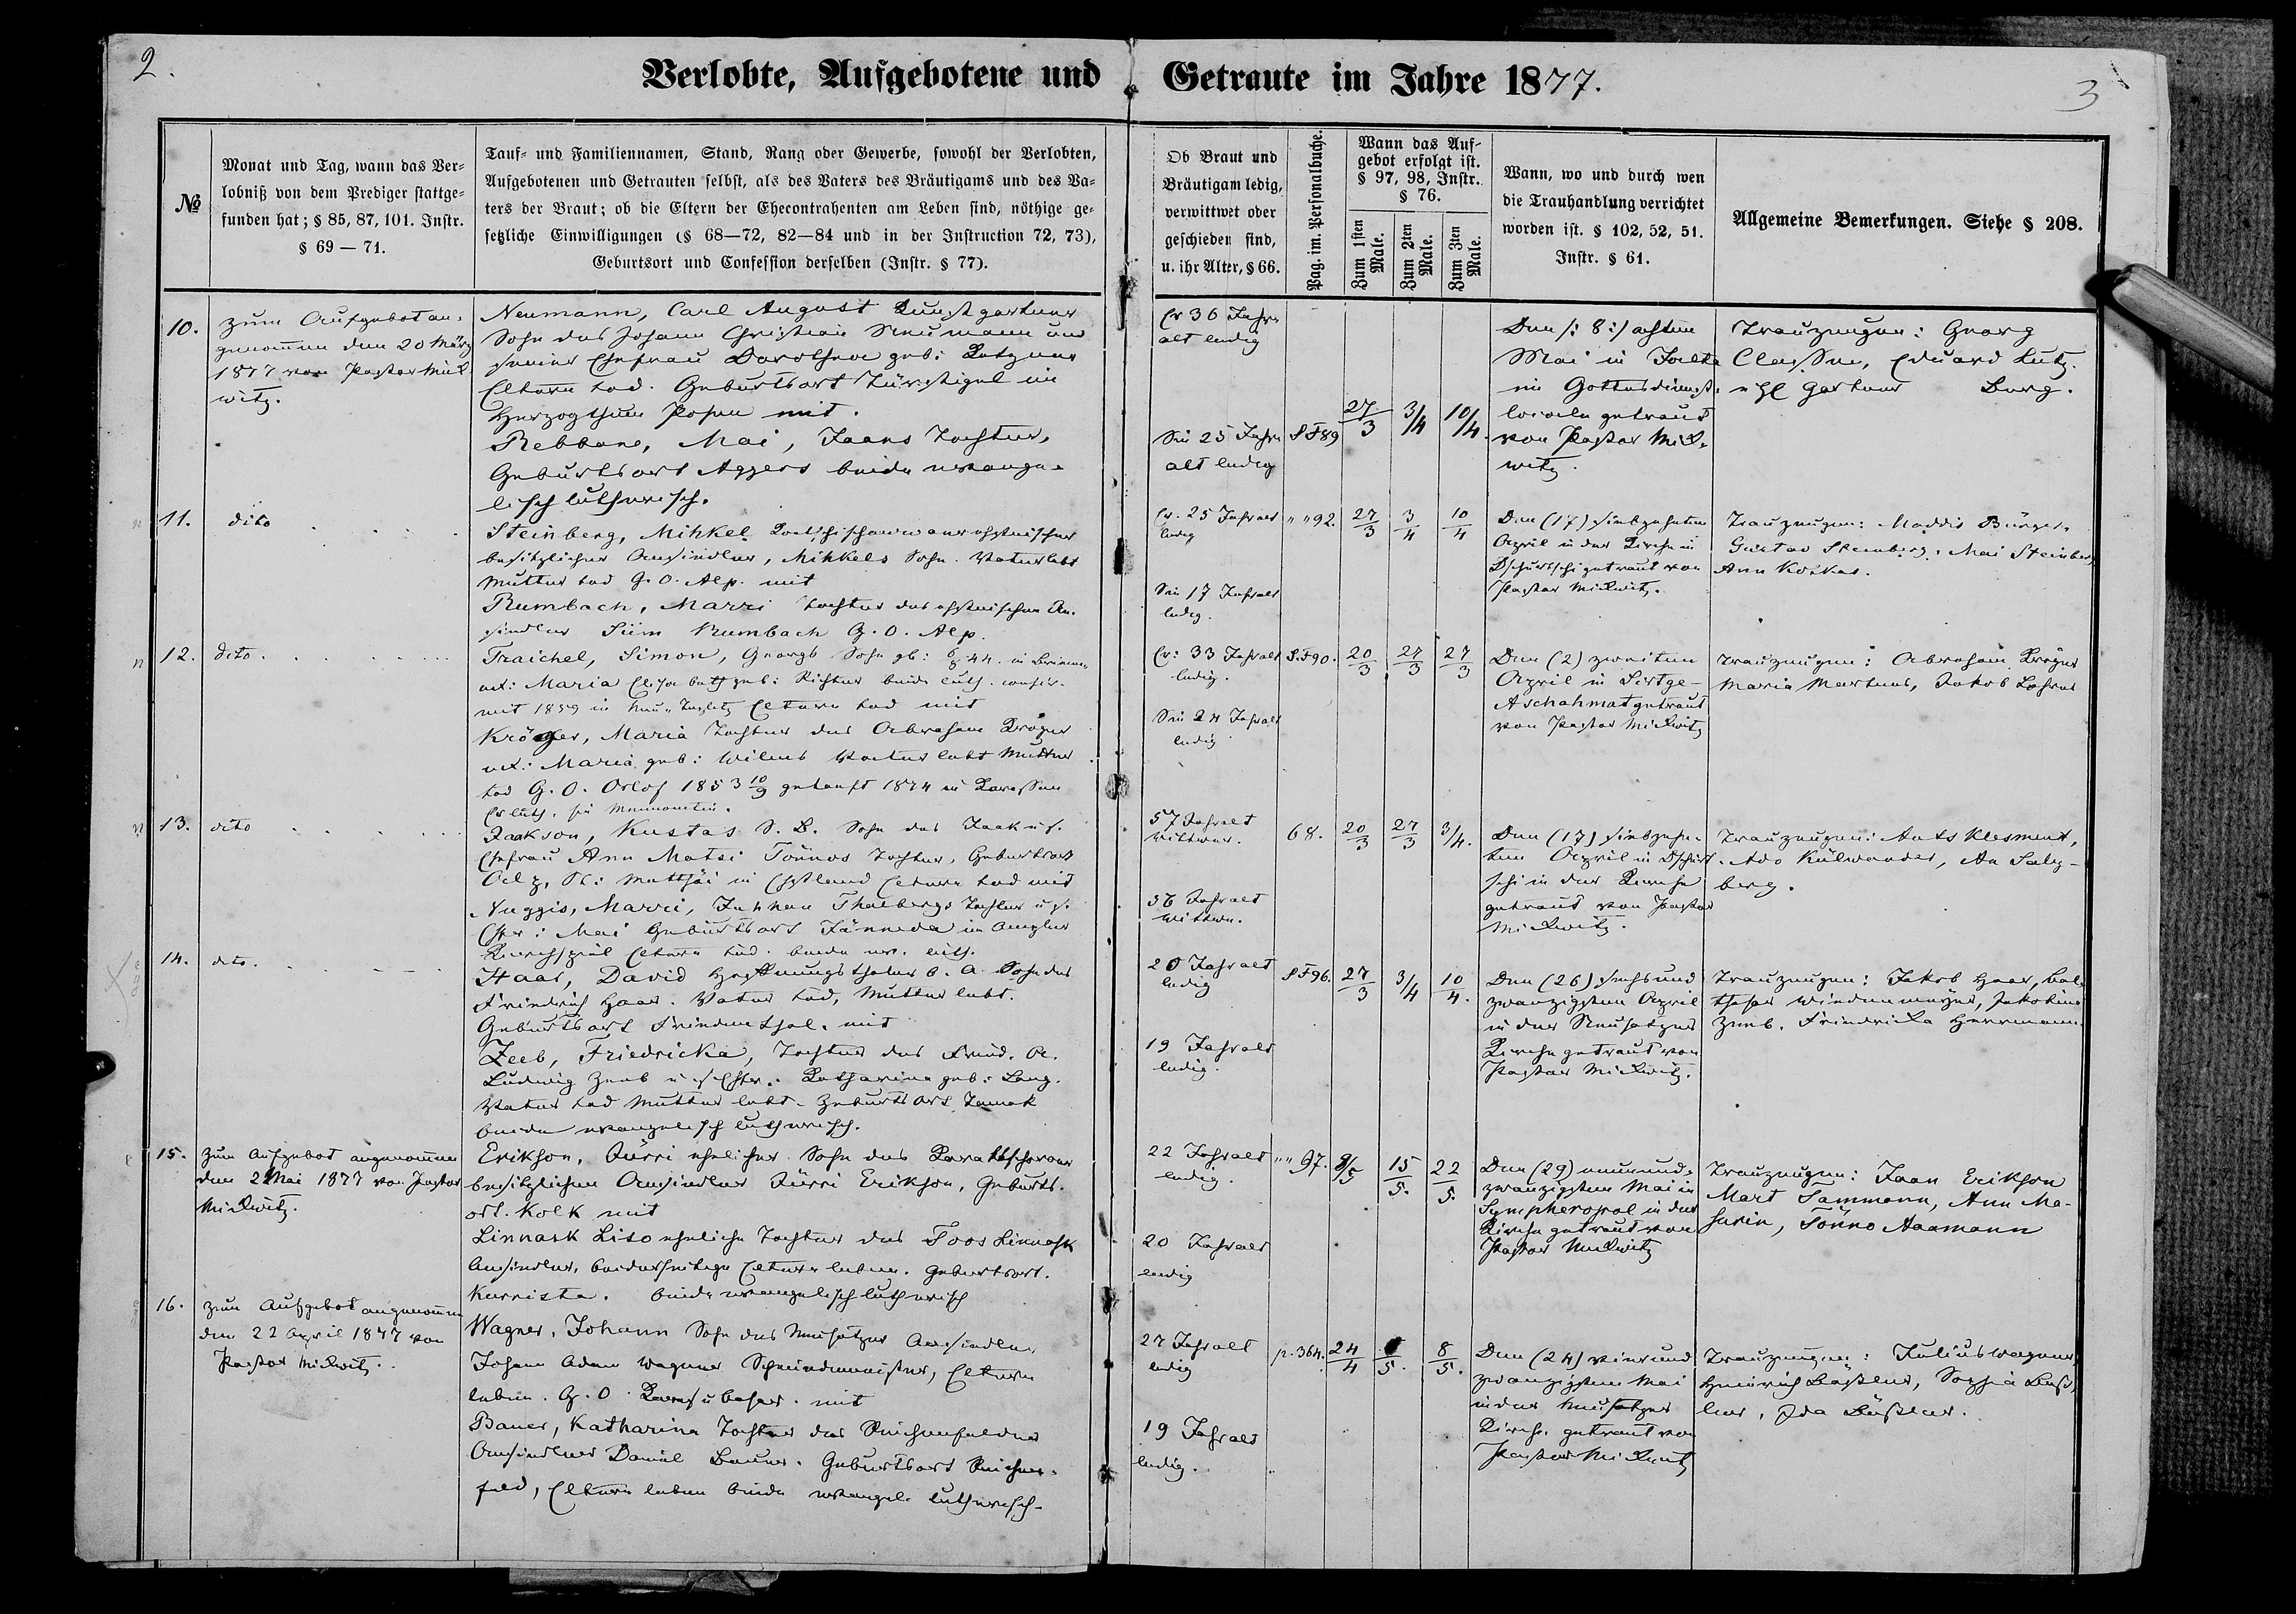 2.
Verlobte, Aufgebotene und Getraute im Jahre 1877.
3
№
Monat und Tag, wann das Ver=
lobniß von dem Prediger stattge=
funden hat; § 85, 87, 101. Instr.
§ 69 — 71.
Tauf= und Familiennamen, Stand, Rang oder Gewerbe, sowohl der Verlobten,
Aufgebotenen und Getrauten selbst, als des Vaters des Bräutigams und des Va=
ters der Braut; ob die Eltern der Ehecontrahenten am Leben sind, nöthige ge=
setzliche Einwilligungen (§ 68—72, 82—84 und in der Instruction 72, 73),
Geburtsort und Confession derselben (Instr. § 77).
Ob Braut und
Bräutigam ledig,
verwittwet oder
geschieden sind,
u. ihr Alter, § 66.
Pag. im. Personalbuche.
Wann das Auf=
gebot erfolgt ist.
§ 97, 98, Instr.
§ 76.
Zum 1sten
Male.
Zum 2ten
Male.
Zum 3ten
Male.
Wann, wo und durch wen
die Trauhandlung verrichtet
worden ist. § 102, 52, 51.
Instr. § 61.
Allgemeine Bemerkungen. Siehe § 208.
10.
zum Aufgebot an-
genommen den 20 März
1877 von Pastor Mick
witz.
Neumann, Carl August Kunstgärtner
Sohn des Johann Christian Neumann und
seiner Ehefrau Dorothea geb:
Eltern tod. Geburtsort Türstigel im
Herzogthum Posen mit.
Rebbane, Mai, Jaans Tochter,
Geburtsort Aggers beide evange-
lisch lutherisch.
Er 36 Jahr
alt ledig
Sie 25 Jahr
alt ledig
S F 89
27/3
3/4
10/4
Den /: 8 :/ achten
Mai in Jalta
im Gottesdienst-
locale getraut
von Pastor Mick-
witz.
Trauzeugen: Georg
Classen, Eduard Lutz.
Gärtner Berg.
11.
dito
Steinberg, Mihkel
besitzlicher Ansiedler, Mihkels Sohn. Vater lebt
Mutter tod G. O. Alp. mit
Rumbach, Marri Tochter des ehstnischen An-
siedlers Siim Rumbach G. O. Alp.
Er. 25 Jahr alt
ledig
Sie 17 Jahr alt
ledig.
" " 92.
27/3
3/4
10/4
Den (17) siebzehnten
April in der Kirche in
Dschurtschi getraut von
Pastor Mickwitz.
Trauzeugen: Maddis Bürger,
Gustav Steinberg, Mai Steinberg
Ann Koskas.
12.
dito
Traichel, Simon, Georgs Sohn gb: 6/8 44. in
ux: Maria Elisabeth geb: Richter beide luth. confir-
mirt 1859 in Eltern tod mit
Kröger, Maria Tochter des Abraham Kröger
ux: Maria geb: Wilms Vater lebt Mutter
tod G. O. Orlof 1853 10/9 getauft 1874 in Karassan
Er luth. sie Mennonitin.
Er: 33 Jahr alt
ledig.
Sie 24 Jahr alt
ledig
S. F 90.
20/3
27/3
27/3
Den (2) zweiten
April in Sirtge-
Aschahmat getraut
von Pastor Mickwitz
Trauzeugen: Abraham Kröger
Maria Martens, Jakob
13.
dito
Jaakson, Kustas S. B. Sohn des Jaak u. s.
Ehefrau Ann Matsi Tõnnos Tochter, Geburtsort
Matthäi in Ehstland Eltern tod mit
Nuggis, Marri, Juhhan Thalbergs Tochter u. s.
Ehfr: Mai Geburtsort Jänneda im Ampler
Kirchspiel Eltern tod. beide ev. luth.
57 Jahr alt
Wittwer.
56 Jahr alt
Wittwe.
68.
20/3
27/3
3/4.
Den (17) siebzehn-
ten April in Dschurt-
schi in der Kirche
getraut von Pastor
Mickwitz.
Trauzeugen: Ants Klesment,
Ado Külwandes, An Salz-
berg.
14.
dito.
Haas, David Sohn des
Friedrich Haas. Vater tod, Mutter lebt.
Geburtsort Friedenthal. mit
Zeeb, Friedricka, Tochter des
Ludwig Zeeb u. s. Ehfr. Katharina geb: Lang.
Vater tod Mutter lebt. Geburtsort
beide evangelisch lutherisch.
20 Jahr alt
ledig
19 Jahr alt
ledig.
S F 96.
27/3
3/4
10/4.
Den (26) sechsund
zwanzigsten April
in der Neusatzer
Kirche getraut von
Pastor Mickwitz.
Trauzeugen: Jakob Haas, Bal-
thasar Jakobine
Zeeb. Friedricka Herrmann.
15.
Zum Aufgebot angenommen
den 2 Mai 1877 von Pastor
Mickwitz.
Erikson, Jürri ehelicher Sohn des
besitzlichen Ansiedlers Jürri Erikson, Geburts-
ort. Kolk mit
Linnask Liso eheliche Tochter des Toos Linnask
Ansiedler, beiderseitige Eltern leben. Geburtsort.
Kurrista. beide evangelisch lutherisch
22 Jahr alt
ledig.
20 Jahr alt
ledig
" " 97.
8/5
15/5.
22/5.
Den (29) neunund-
zwanzigsten Mai in
Sympheropol in der
Kirche getraut von
Pastor Mickwitz
Trauzeugen: Jaan Erikson
Mart Tammann, Ann Ma-
surin, Tönno Aaamann
16.
zum Aufgebot angenommen
den 22 April 1877 von
Pastor Mickwitz.
Wagner, Johann Sohn des Neusatzer Ansiedlers
Johann Adam Wagner Schneidermeister, Eltern
leben. G. O. mit
Bauer, Katharina Tochter des Reichenfelder
Ansiedlers Daniel Bauer. Geburtsort Reichen-
feld, Eltern leben beide evangel. lutherisch.
27 Jahr alt
ledig
19 Jahr alt
ledig.
p. 364.
24/4
8/5.
Den (24) vierund
zwanzigsten Mai
in der Neusatzer
Kirche getraut von
Pastor Mickwitz
Trauzeugen: Julius Wagner,
Heinrich Sophia
Ida